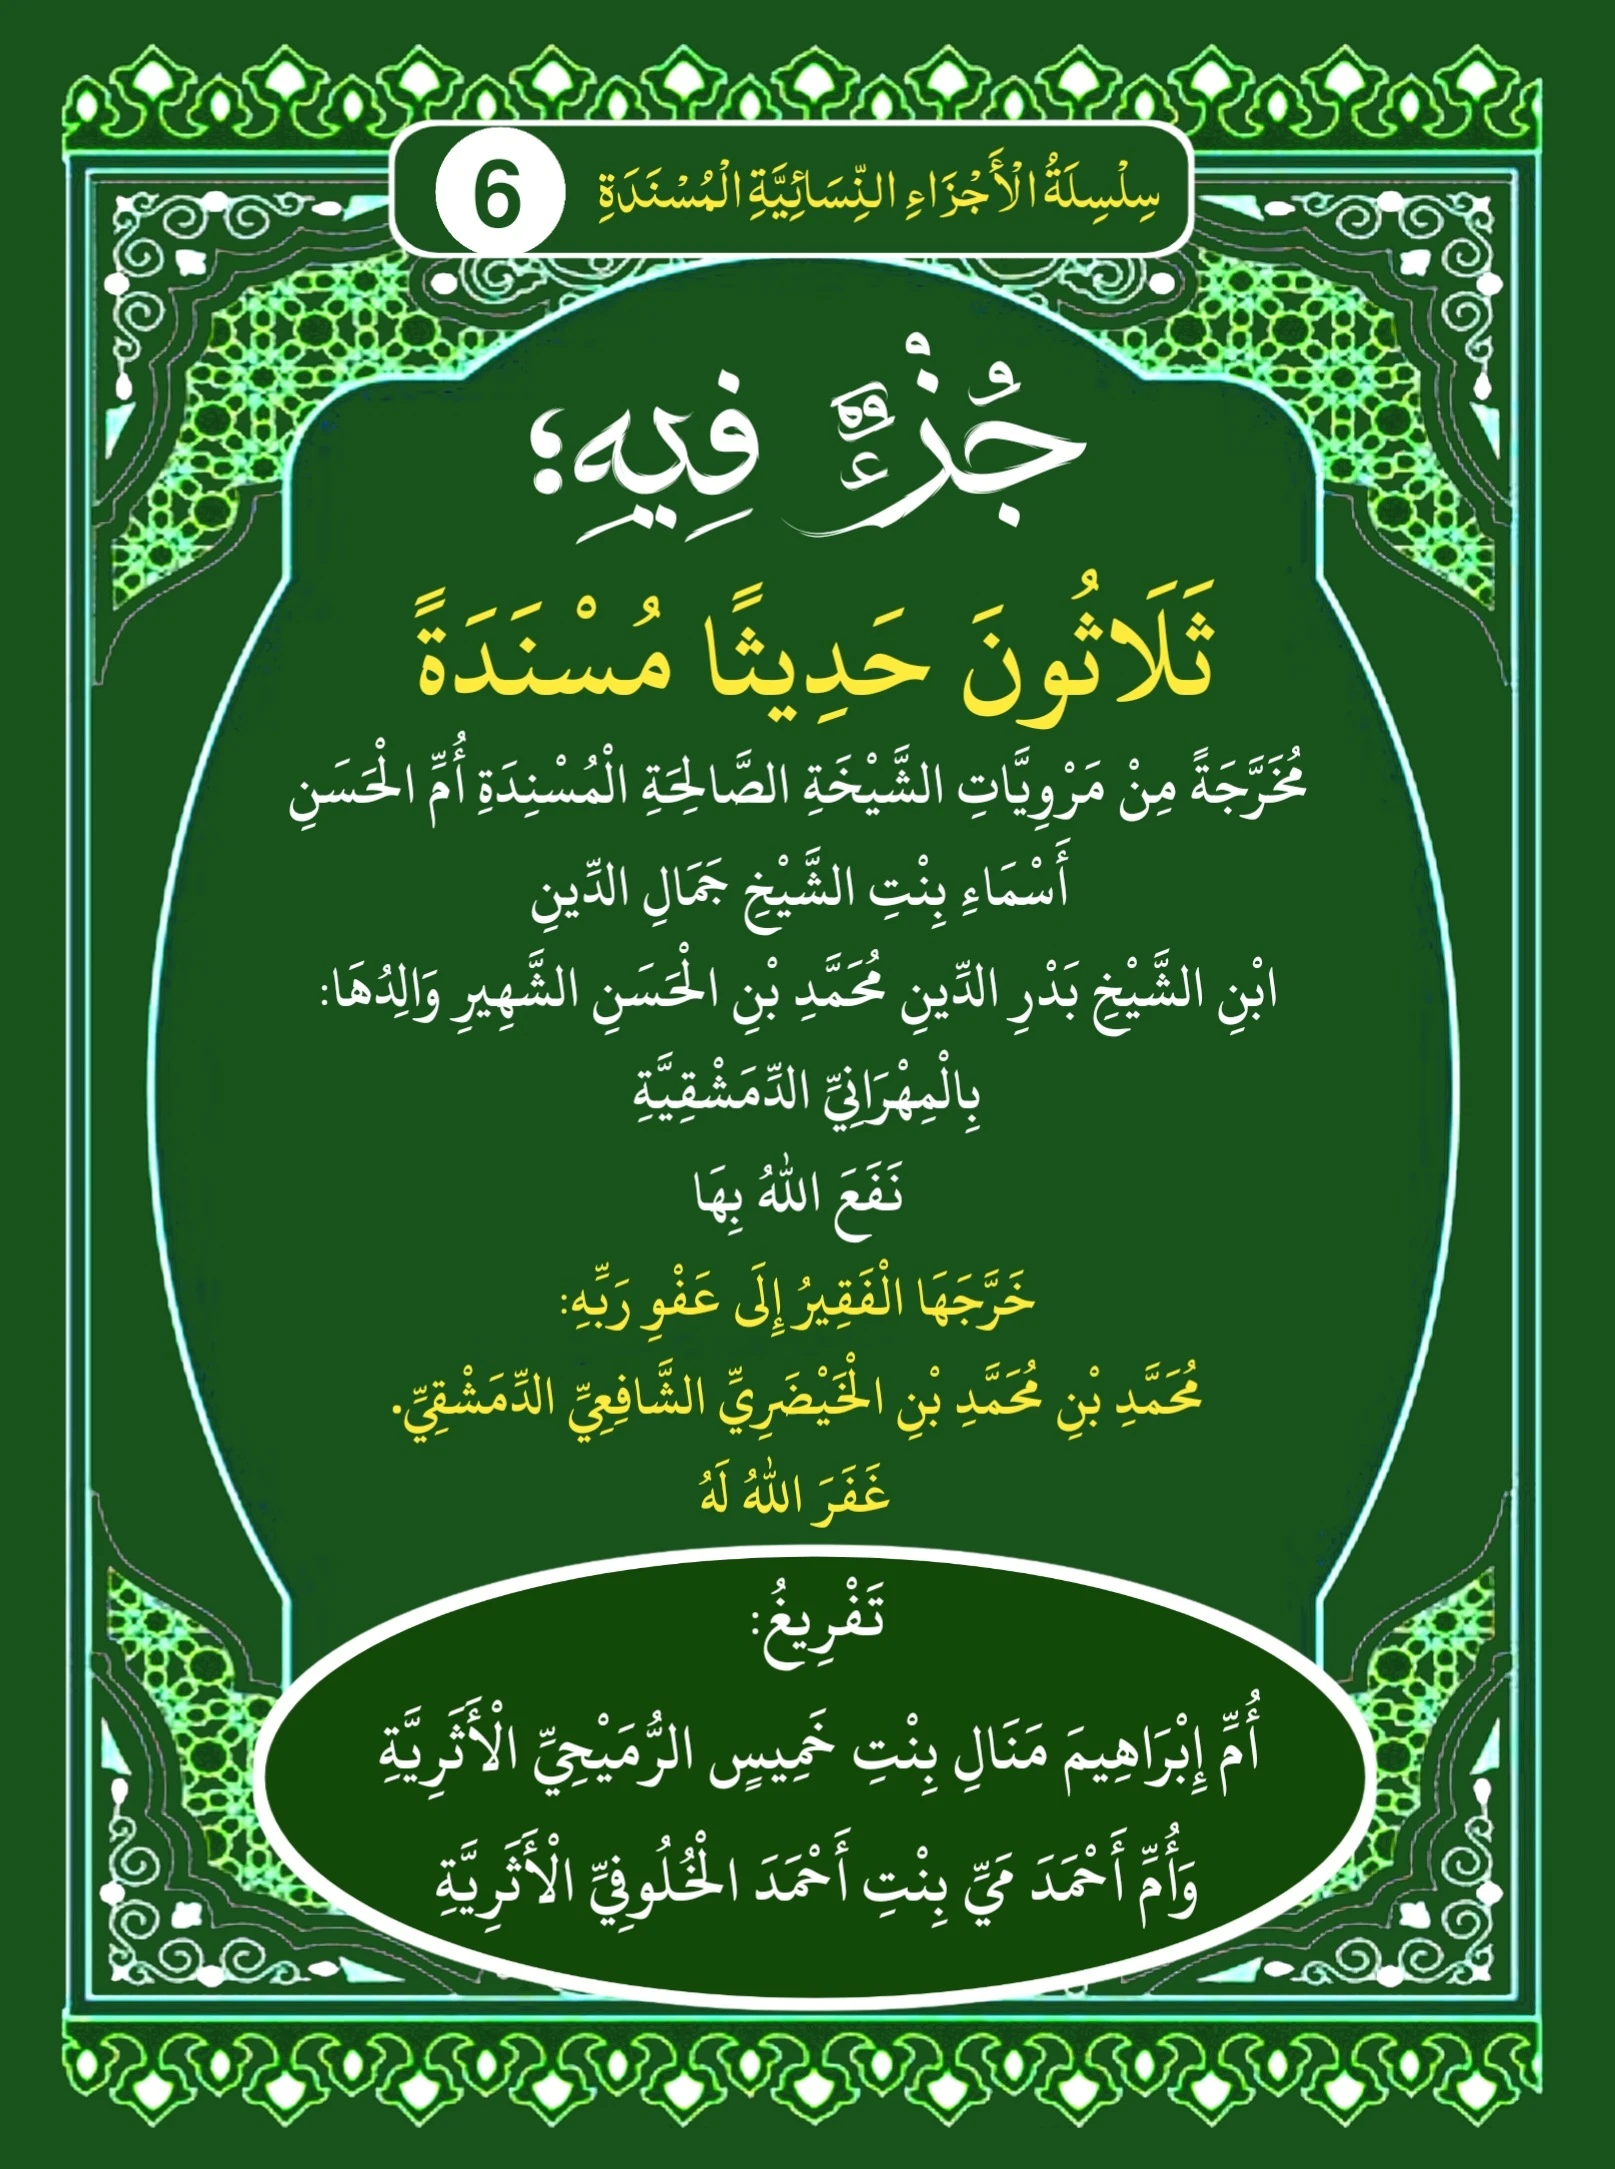 سِلْسِلَةُ الْأَجْزَاءِ النِّسَائِيَّةِ الْمُسْنَدَةِ 6
جُزْءٌ فِيهِ؛
ثَلَاثُونَ حَدِيثًا مُسْنَدَةً
مُخَرَّجَةً مِنْ مَرْوِيَّاتِ الشَّيْخَةِ الصَّالِحَةِ الْمُسْنِدَةِ أُمِّ الْحَسَنِ
أَسْمَاءِ بِنْتِ الشَّيْخِ جَمَالِ الدِّينِ
ابْنِ الشَّيْخِ بَدْرِ الدِّينِ مُحَمَّدِ بْنِ الْحَسَنِ الشَّهِيرِ وَالِدُهَا:
بِالْمِهْرَانِيِّ الدِّمَشْقِيَّةِ
نَفَعَ اللهُ بِهَا
خَرَّجَهَا الْفَقِيرُ إِلَى عَفْوِ رَبِّهِ:
مُحَمَّدِ بْنِ مُحَمَّدِ بْنِ الْخَيْضَرِيِّ الشَّافِعِيِّ الدِّمَشْقِيِّ.
غَفَرَ اللهُ لَهُ
تَفْرِيغُ:
أُمِّ إِبْرَاهِيمَ مَنَالِ بِنْتِ خَمِيسٍ الرُّمَيْحِيِّ الْأَثَرِيَّةِ
وَأُمِّ أَحْمَدَ مَيِّ بِنْتِ أَحْمَدَ الْخُلُوفِيِّ الْأَثَرِيَّةِ